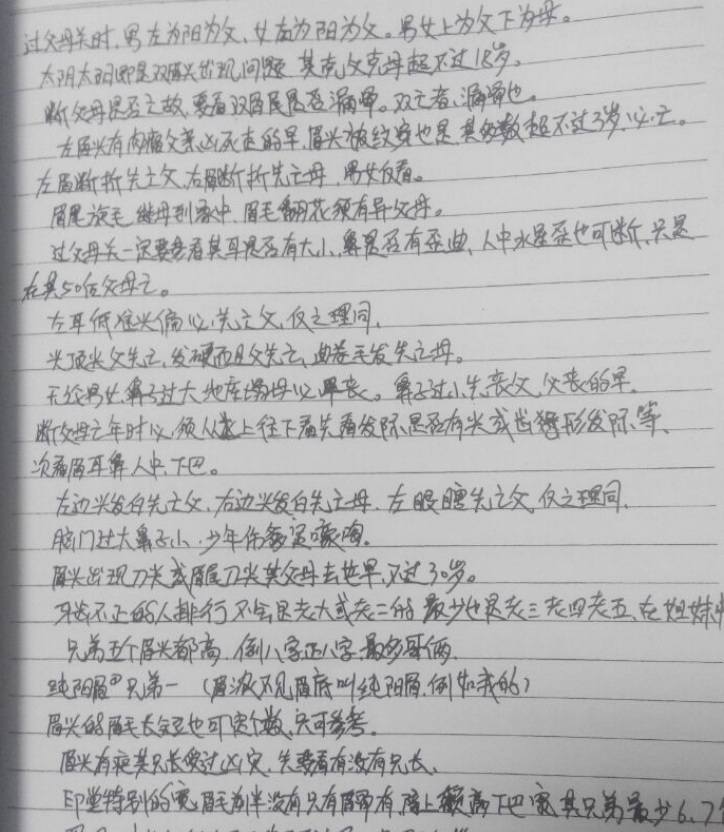 过父母关时，男左为阳为父，女右为阳为父。男女上为父下为母。
太阴太阳即是双眉头出现问题，其克父克母超不过18岁。
断父母是否亡故，要看双眉尾是否漏单。双亡者，漏单也。
左眉头有肉瘤父亲凶死走的早，眉头被纹穿也是，其多数超不过3岁，必亡。
左眉断折先亡父，右眉断折先亡母，男女反看。
眉尾旋毛，继母到家中，眉毛翻花须有异父母。
过父母关一定要参看其耳是否有大小，鼻是否有歪曲，人中水星歪也可断，只是
在其50估父母亡。
左耳低准头偏必先亡父，反之理同，
头顶尖父先亡，发硬而且父先亡，曲卷毛发先亡母。
无论男女，鼻子过大地库塌母必早丧。鼻子过小先丧父，父丧的早。
断父母亡年时必须从上往下看先看发际是否有尖或齿形发际，等
次看眉耳鼻人中下巴。
左边头发白先亡父，右边头发白先亡母，左眼瞎先亡父，反之理同，
脑门过大鼻子小，少年伤
眉头出现刀尖或眉尾刀尖其父母去世早，不过30岁。
牙齿不正的人排行不会是老大或老二的，最少也是老三老四老五，在姐妹中
兄弟五个眉头都高，倒八字正八字，最多哥俩。
纯阳眉 兄弟一（眉浓不见眉底叫纯阳眉，例如我的）
眉头的眉毛长短也可定个数，只可参考。
眉头有痣其兄长受过凶灾，先要看有没有兄长、
印堂特别的宽，眉毛前半没有只有眉 有，眉上额高下巴宽其兄弟最少6、7